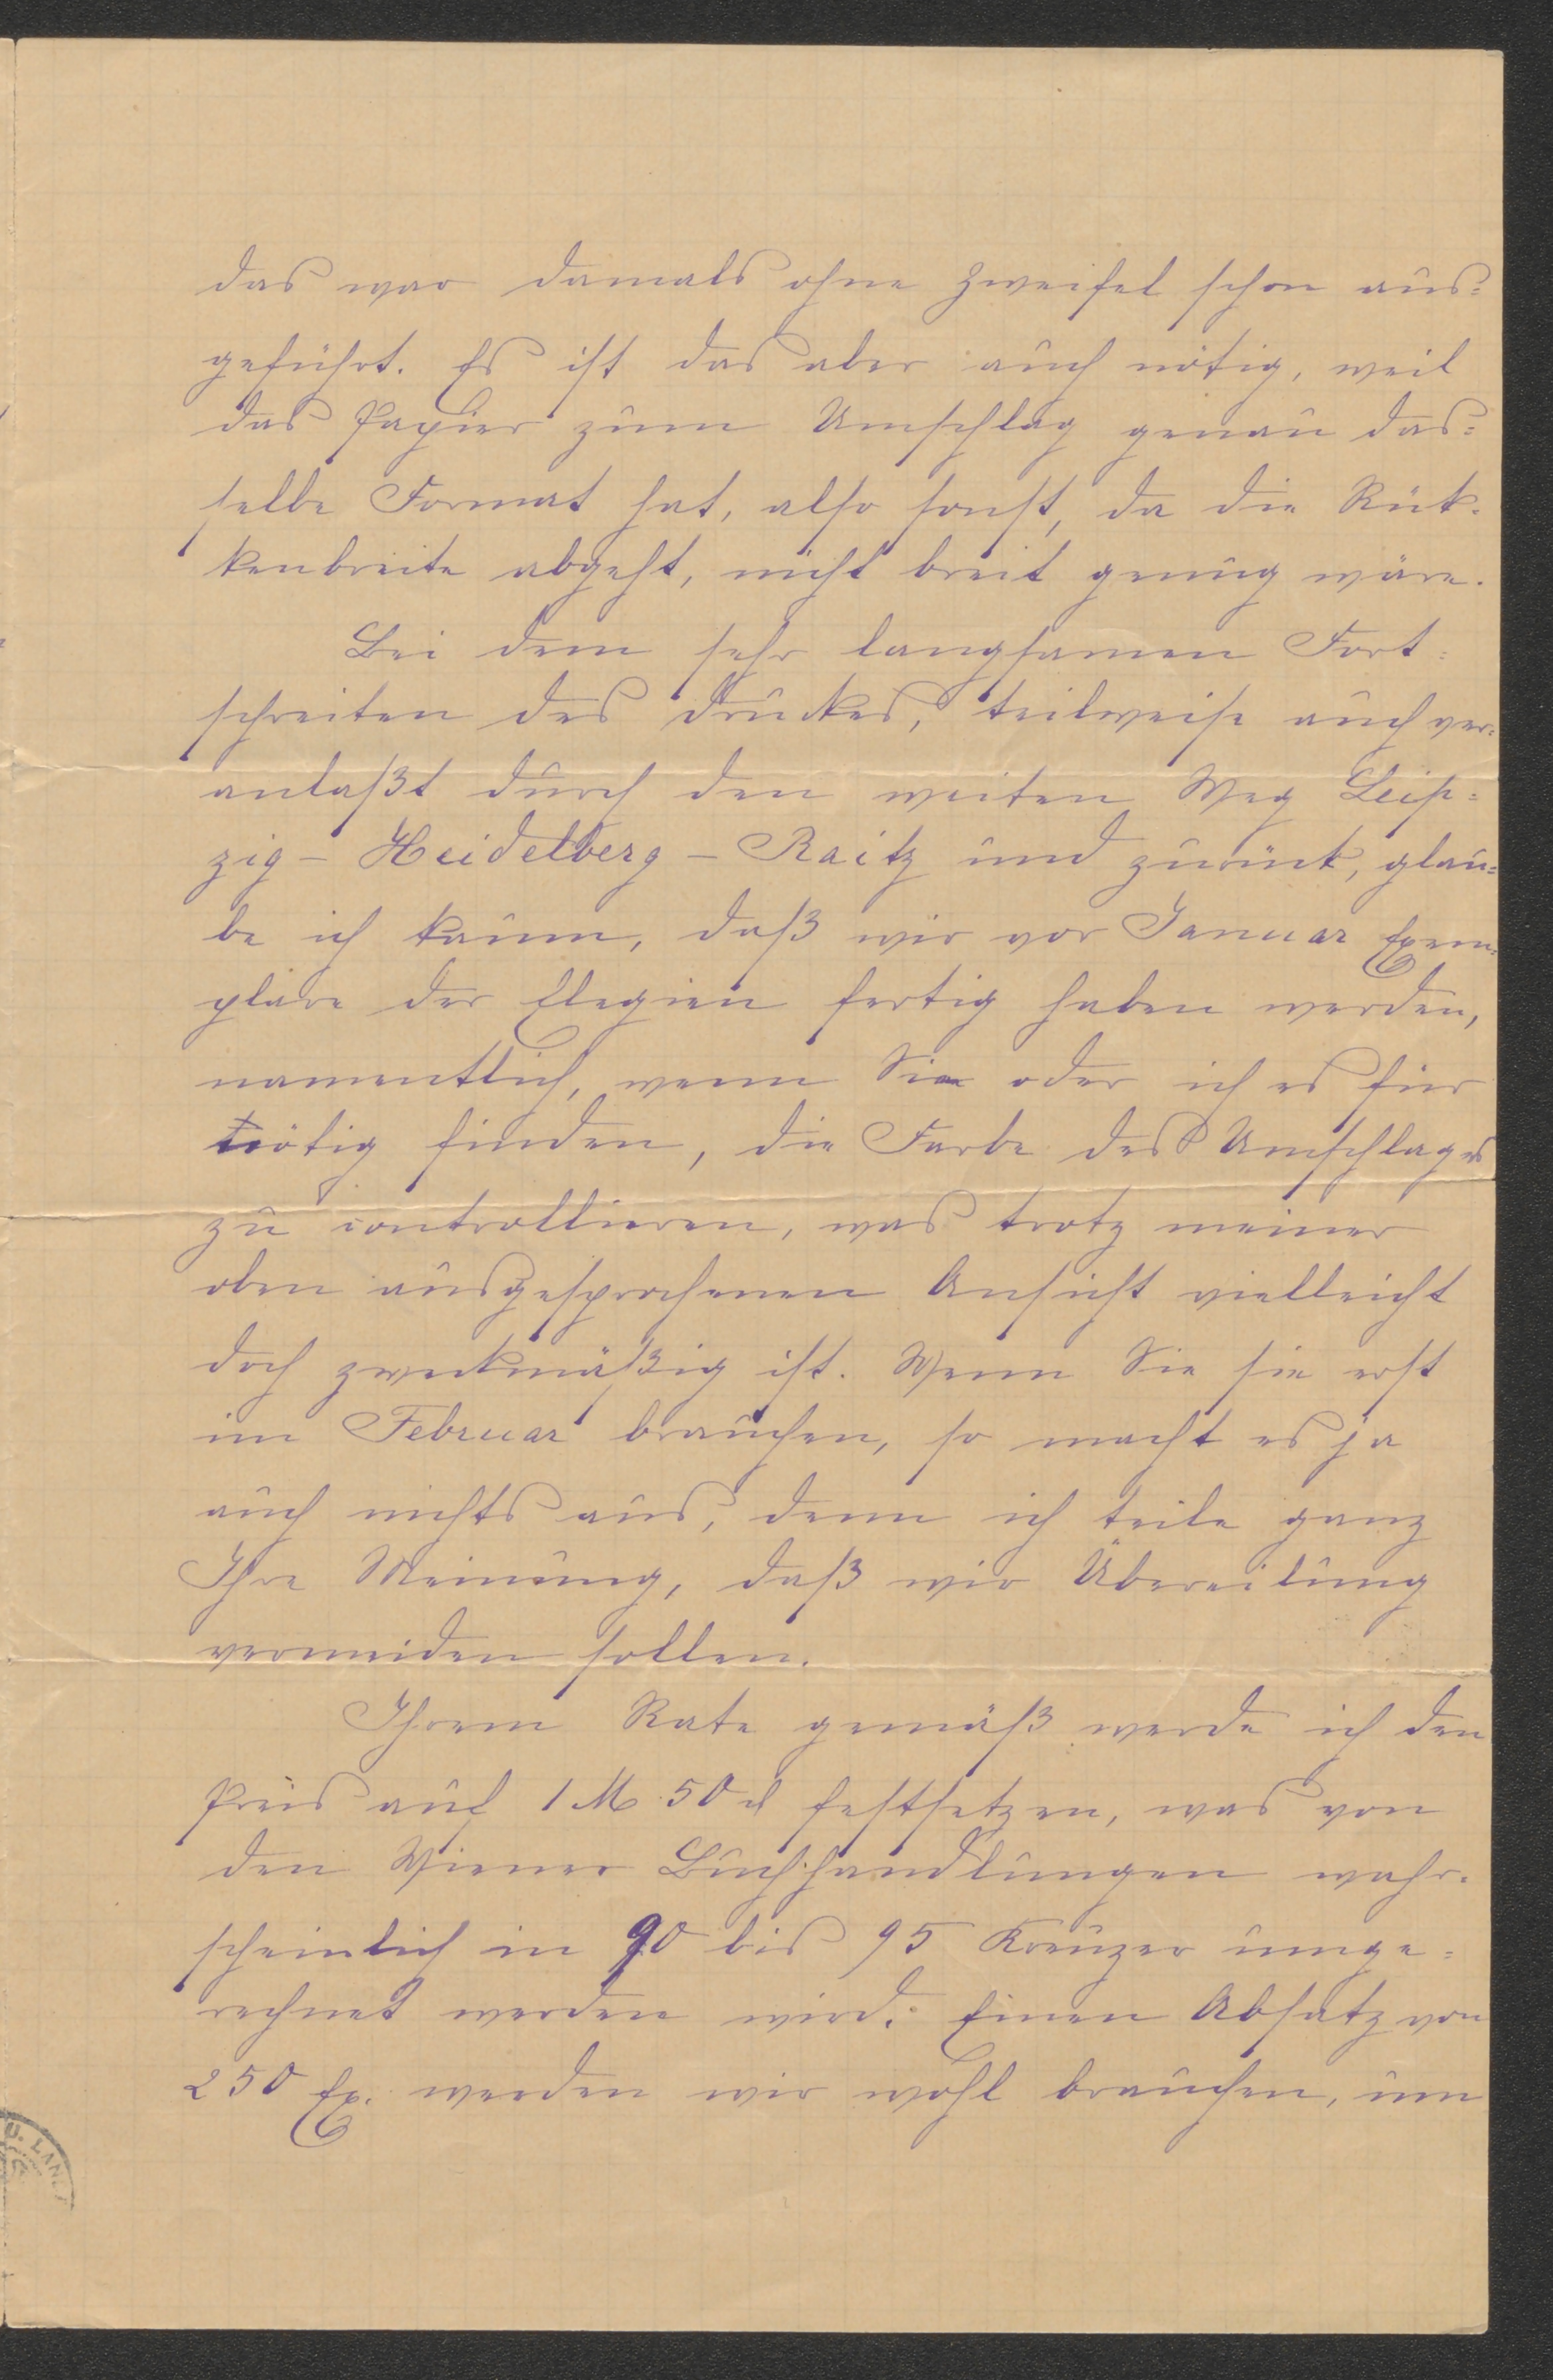 das war damals ohne Zweifel schon aus=
geführt. Es ist das aber auch nötig, weil
das Papier zum Umschlag genau das=
selbe Format hat, also sonst, da die Rük=
kenbreite abgeht, nicht breit genug wäre.
Bei dem sehr langsamen Fort=
schreiten des Druckes, teilweise auch ver=
anlaßt durch den weiten Weg Leip=
zig - Heidelberg - Raitz und zurück, glau=
be ich kaum, daß wir vor Januar Exem=
plare der Elegien fertig haben werden,
namentlich, wenn Sie oder ich es für
nötig finden, die Farbe des Umschlages
zu controllieren, was trotz meiner
oben ausgesprochenen Ansicht vielleicht
doch zweckmäßig ist. Wenn Sie sie erst
im Februar brauchen, so macht es ja
auch nichts aus, denn ich teile ganz
Ihre Meinung, daß wir Übereilung
vermeiden sollen.
Ihrem Rate gemäß werde ich den
Preis auf 1 M 50 ₰ festsetzen, was von
den Wiener Buchhandlungen wahr=
scheinlich in 90 bis 95 Kreuzer umge=
rechnet werden wird. Einen Absatz von
250 Ex. werden wir wohl brauchen, um
U. LAND